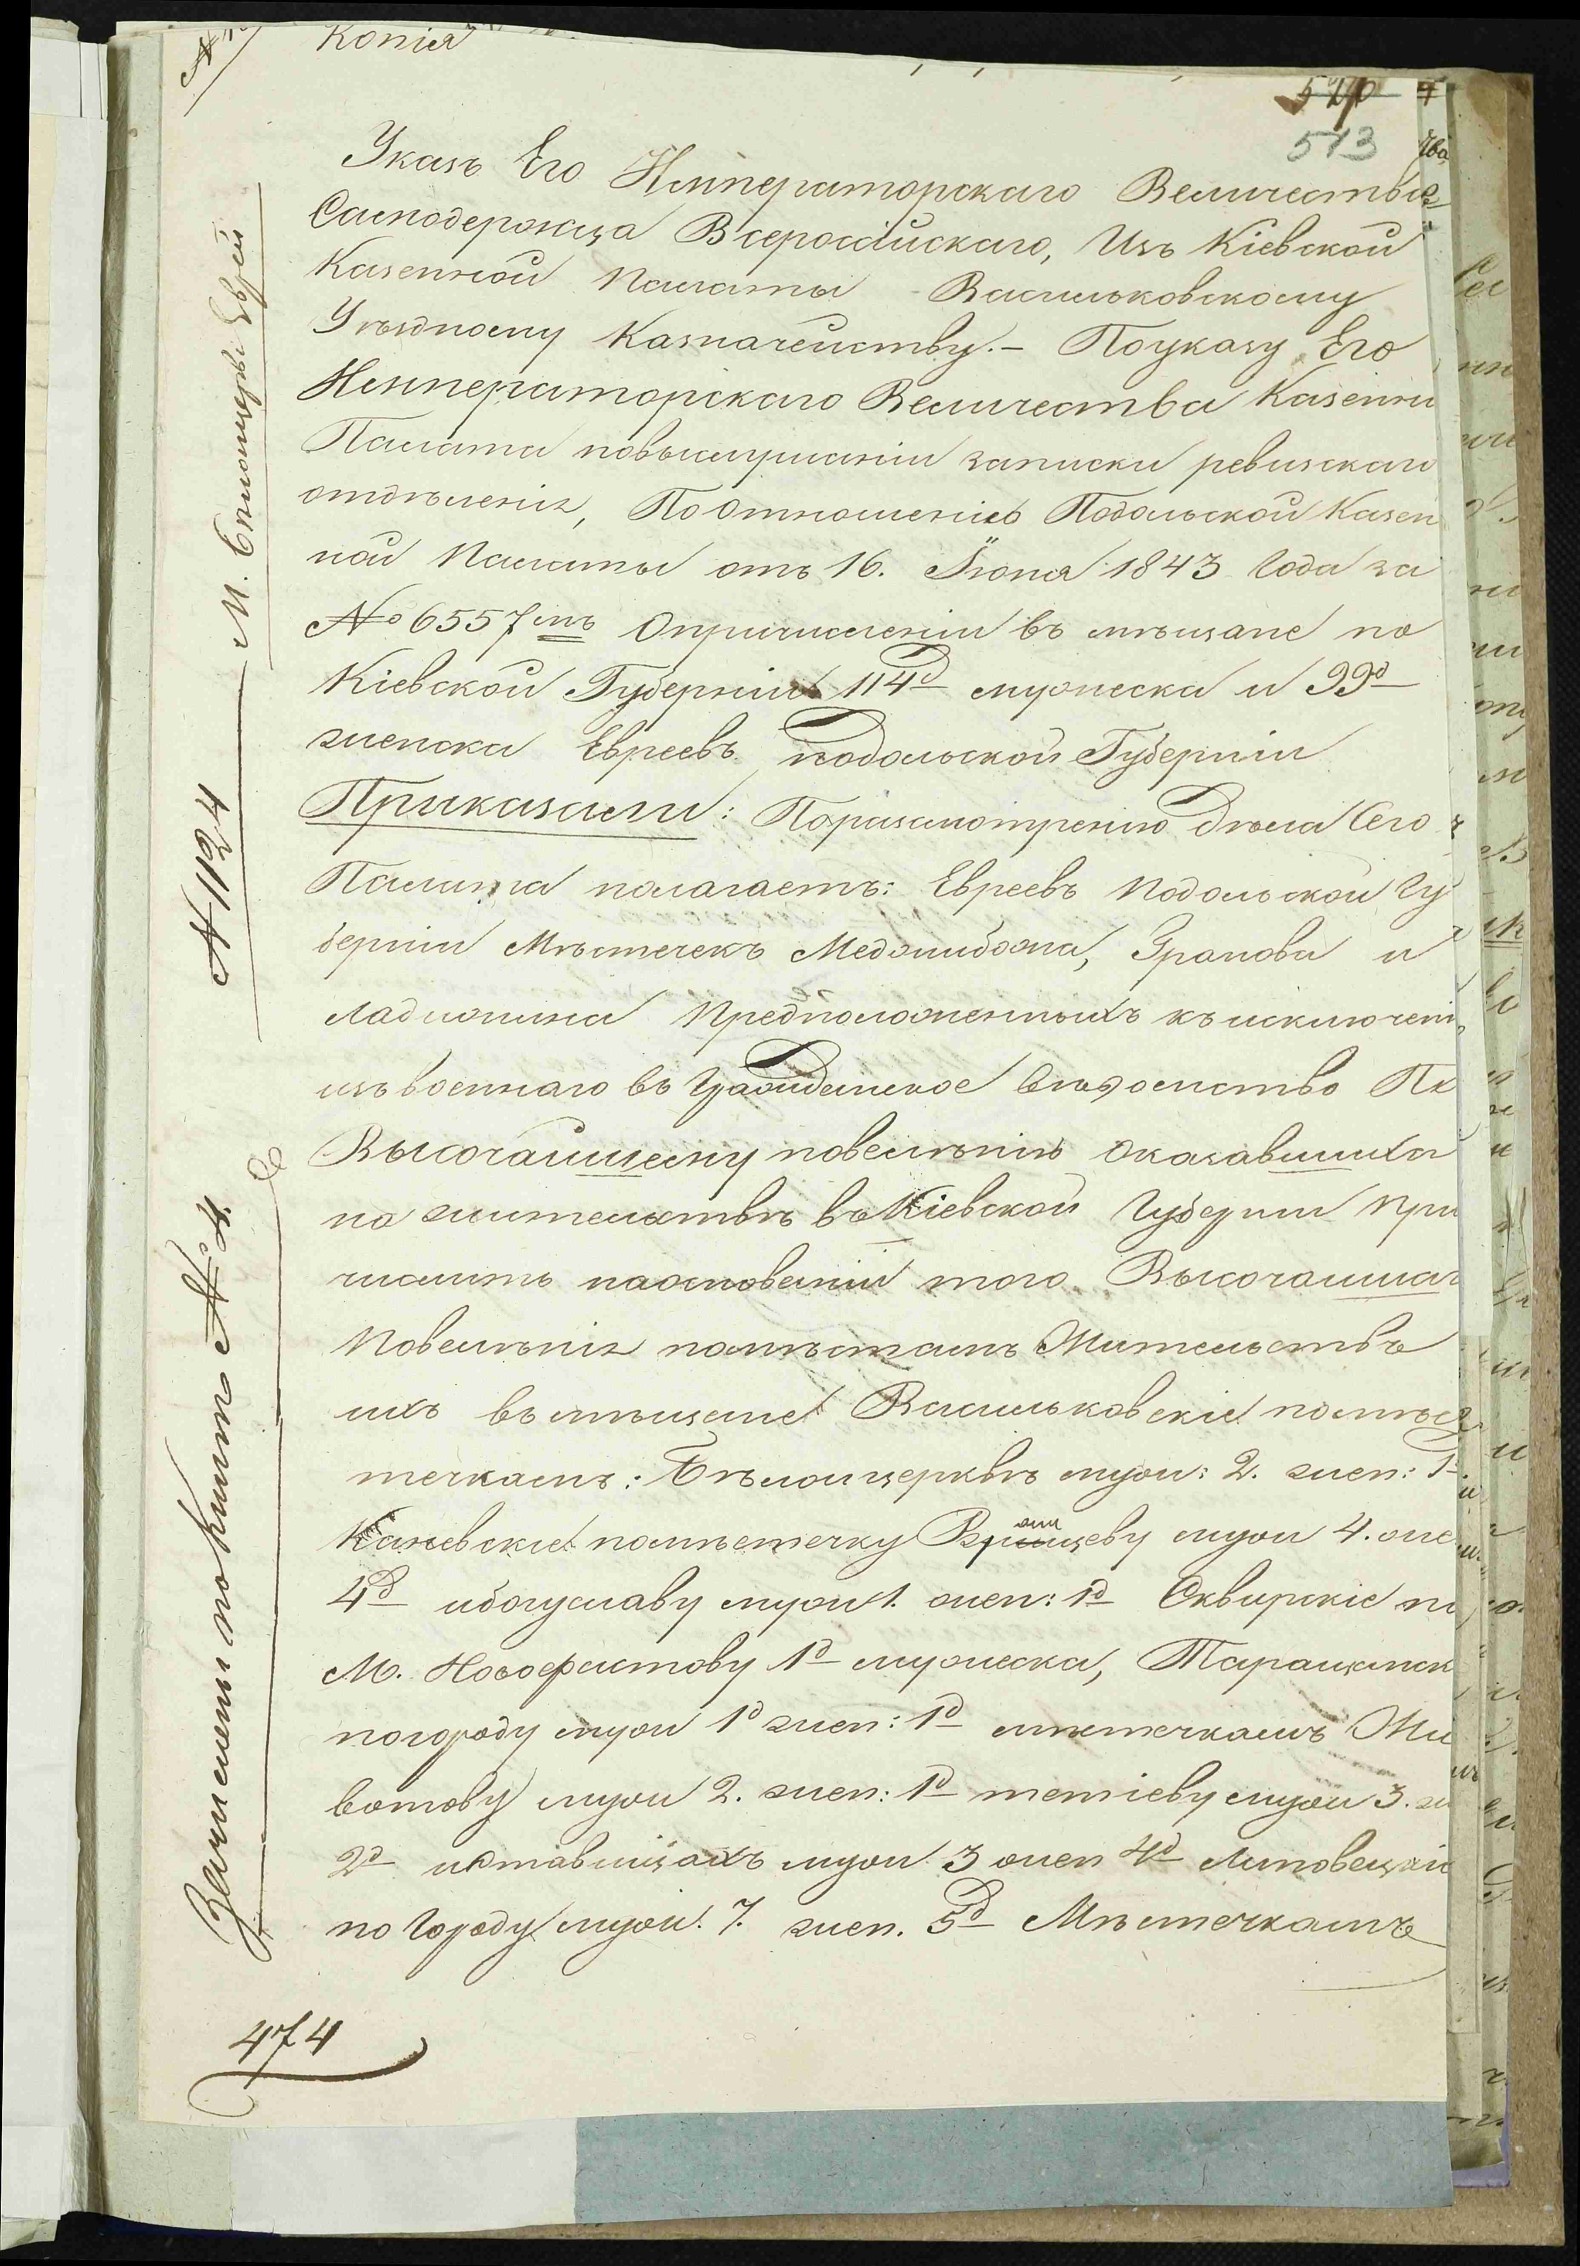 Копія
513
Указъ Его Императорскаго Величества
Самодержца Всероссійскаго, Изъ Кіевской
Казенной Палаты Васильковскому
Уѣздному Казначейству.– Поуказу Его
Императорскаго Величества Казенн
Палата повыслушаніи записки ревизскаго
отдѣленія, По Отношенію Подольской Казен
ной Палаты отъ 16. Іюня 1843 Года за
№ 6557мъ Опричисленіи въ мѣщане по
Кіевской Губерніи 114д мужеска и 99д
женска Евреевъ подольской Губерніи
Приказали: Поразсмотренію Дѣла Сего
Палата полагаетъ: Евреевъ Подольской Гу
берніи Мѣстечекъ Меджибожа, Гранова и
Ладыжина Предположенныхъ къ исключені
изъ военнаго въ Гражданское вѣдомство По
Высочайшему повелѣнію оказавшихся
по жительствѣ въ Кіевской Губерніи При
числить наоснованіи того Высочайша
Повелѣнія помѣстамъ Жительствъ
ихъ въ мѣщане Васильковскіе помѣс
течкамъ: Бѣлойцерквѣ муж: 2. жен: 1д
Каневские помѣстечку Ржищеву муж 4. же
4д ибогуславу муж 1. жен: 1д Сквирскіе по
М. Новофастову 1д мужеска, Таращанск
погороду муж 1д жен: 1д мѣстечкамъ Жи
вотову муж 2. жен: 1д тетіеву муж 3. же
2д иставищахъ муж 3 жен 4д Липовецкіе
по Городу муж. 7. жен. 5д Мѣстечкамъ
М. Бѣлоцеркв: Евреи
№ 1124
Зачислены по книге № 4.
474